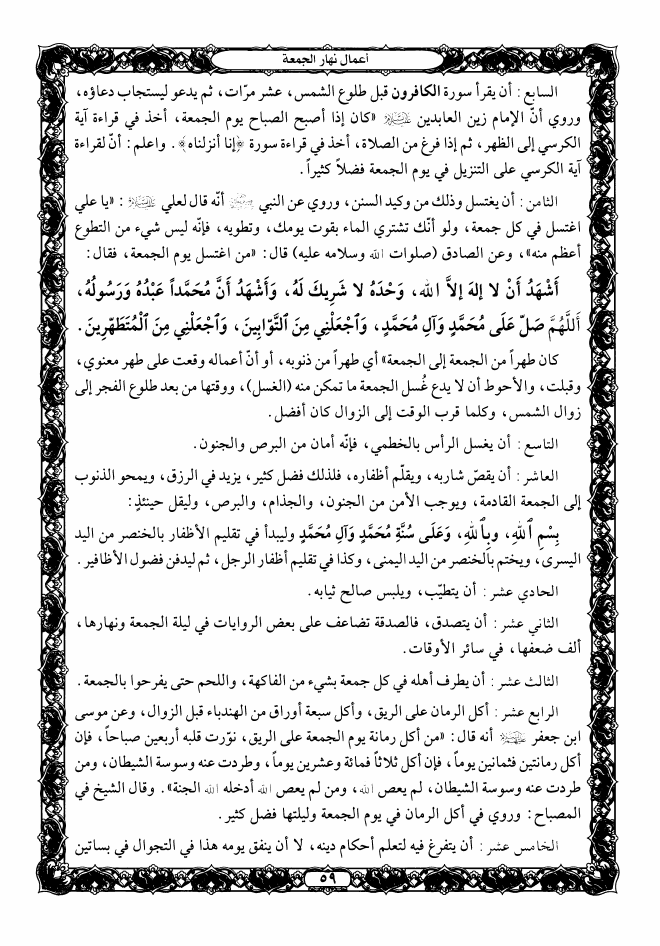 أعمال نهار الجمعة
السابع: أن يقرأ سورة الكافرون قبل طلوع الشمس، عشر مرّات، ثم يدعو ليستجاب دعاؤه،
وروي أنّ الإمام زين العابدين عليه السلام «كان إذا أصبح الصباح يوم الجمعة، أخذ في قراءة آية
الكرسي إلى الظهر، ثم إذا فرغ من الصلاة، أخذ في قراءة سورة ﴿إنا أنزلناه﴾. واعلم: أنّ لقراءة
آية الكرسي على التنزيل في يوم الجمعة فضلاً كثيراً.
الثامن: أن يغتسل وذلك من وكيد السنن، وروي عن النبي أنّه قال لعلي عليه السلام: «يا علي
اغتسل في كل جمعة، ولو أنّك تشتري الماء بقوت يومك، وتطويه، فإنّه ليس شيء من التطوع
أعظم منه»، وعن الصادق (صلوات الله وسلامه عليه) قال: «من اغتسل يوم الجمعة، فقال:
أَشْهَدُ أَنْ لا إلهَ إلاَّ الله، وَحْدَهُ لا شَرِيكَ لَهُ، وَأَشْهَدُ أَنَّ مُحَمَّداً عَبْدُهُ وَرَسُولُهُ،
أَللَّهُمَّ صَلِّ عَلَى مُحَمَّدٍ وَآلِ مُحَمَّدٍ، وَٱجْعَلْنِي مِنَ ٱلتَّوَّابِينَ، وَٱجْعَلْنِي مِنَ ٱلْمُتَطَهِّرِينَ.
كان طهراً من الجمعة إلى الجمعة» أي طهراً من ذنوبه، أو أنّ أعماله وقعت على طهر معنوي،
وقبلت، والأحوط أن لا يدع غُسل الجمعة ما تمكن منه (الغسل)، ووقتها من بعد طلوع الفجر إلى
زوال الشمس، وكلما قرب الوقت إلى الزوال كان أفضل.
التاسع: أن يغسل الرأس بالخطمي، فإنّه أمان من البرص والجنون.
العاشر: أن يقصّ شاربه، ويقلّم أظفاره، فلذلك فضل كثير، يزيد في الرزق، ويمحو الذنوب
إلى الجمعة القادمة، ويوجب الأمن من الجنون، والجذام، والبرص، وليقل حينئذٍ:
بِسْمِ ٱللهِ، وبِٱللهِ، وَعَلَى سُنَّةِ مُحَمَّدٍ وَآلِ مُحَمَّدٍ وليبدأ في تقليم الأظفار بالخنصر من اليد
اليسرى، ويختم بالخنصر من اليد اليمنى، وكذا في تقليم أظفار الرجل، ثم ليدفن فضول الأظافير.
الحادي عشر: أن يتطيّب، ويلبس صالح ثيابه.
الثاني عشر: أن يتصدق، فالصدقة تضاعف على بعض الروايات في ليلة الجمعة ونهارها،
ألف ضعفها، في سائر الأوقات.
الثالث عشر: أن يطرف أهله في كل جمعة بشيء من الفاكهة، واللحم حتى يفرحوا بالجمعة.
الرابع عشر: أكل الرمان على الريق، وأكل سبعة أوراق من الهندباء قبل الزوال، وعن موسى
ابن جعفر عليه السلام أنه قال: «من أكل رمانة يوم الجمعة على الريق، نوّرت قلبه أربعين صباحاً، فإن
أكل رمانتين فثمانين يوماً، فإن أكل ثلاثاً فمائة وعشرين يوماً، وطردت عنه وسوسة الشيطان، ومن
طردت عنه وسوسة الشيطان، لم يعص الله، ومن لم يعص الله أدخله الله الجنة». وقال الشيخ في
المصباح: وروي في أكل الرمان في يوم الجمعة وليلتها فضل كثير.
الخامس عشر: أن يتفرغ فيه لتعلم أحكام دينه، لا أن ينفق يومه هذا في التجوال في بساتين
٥٩